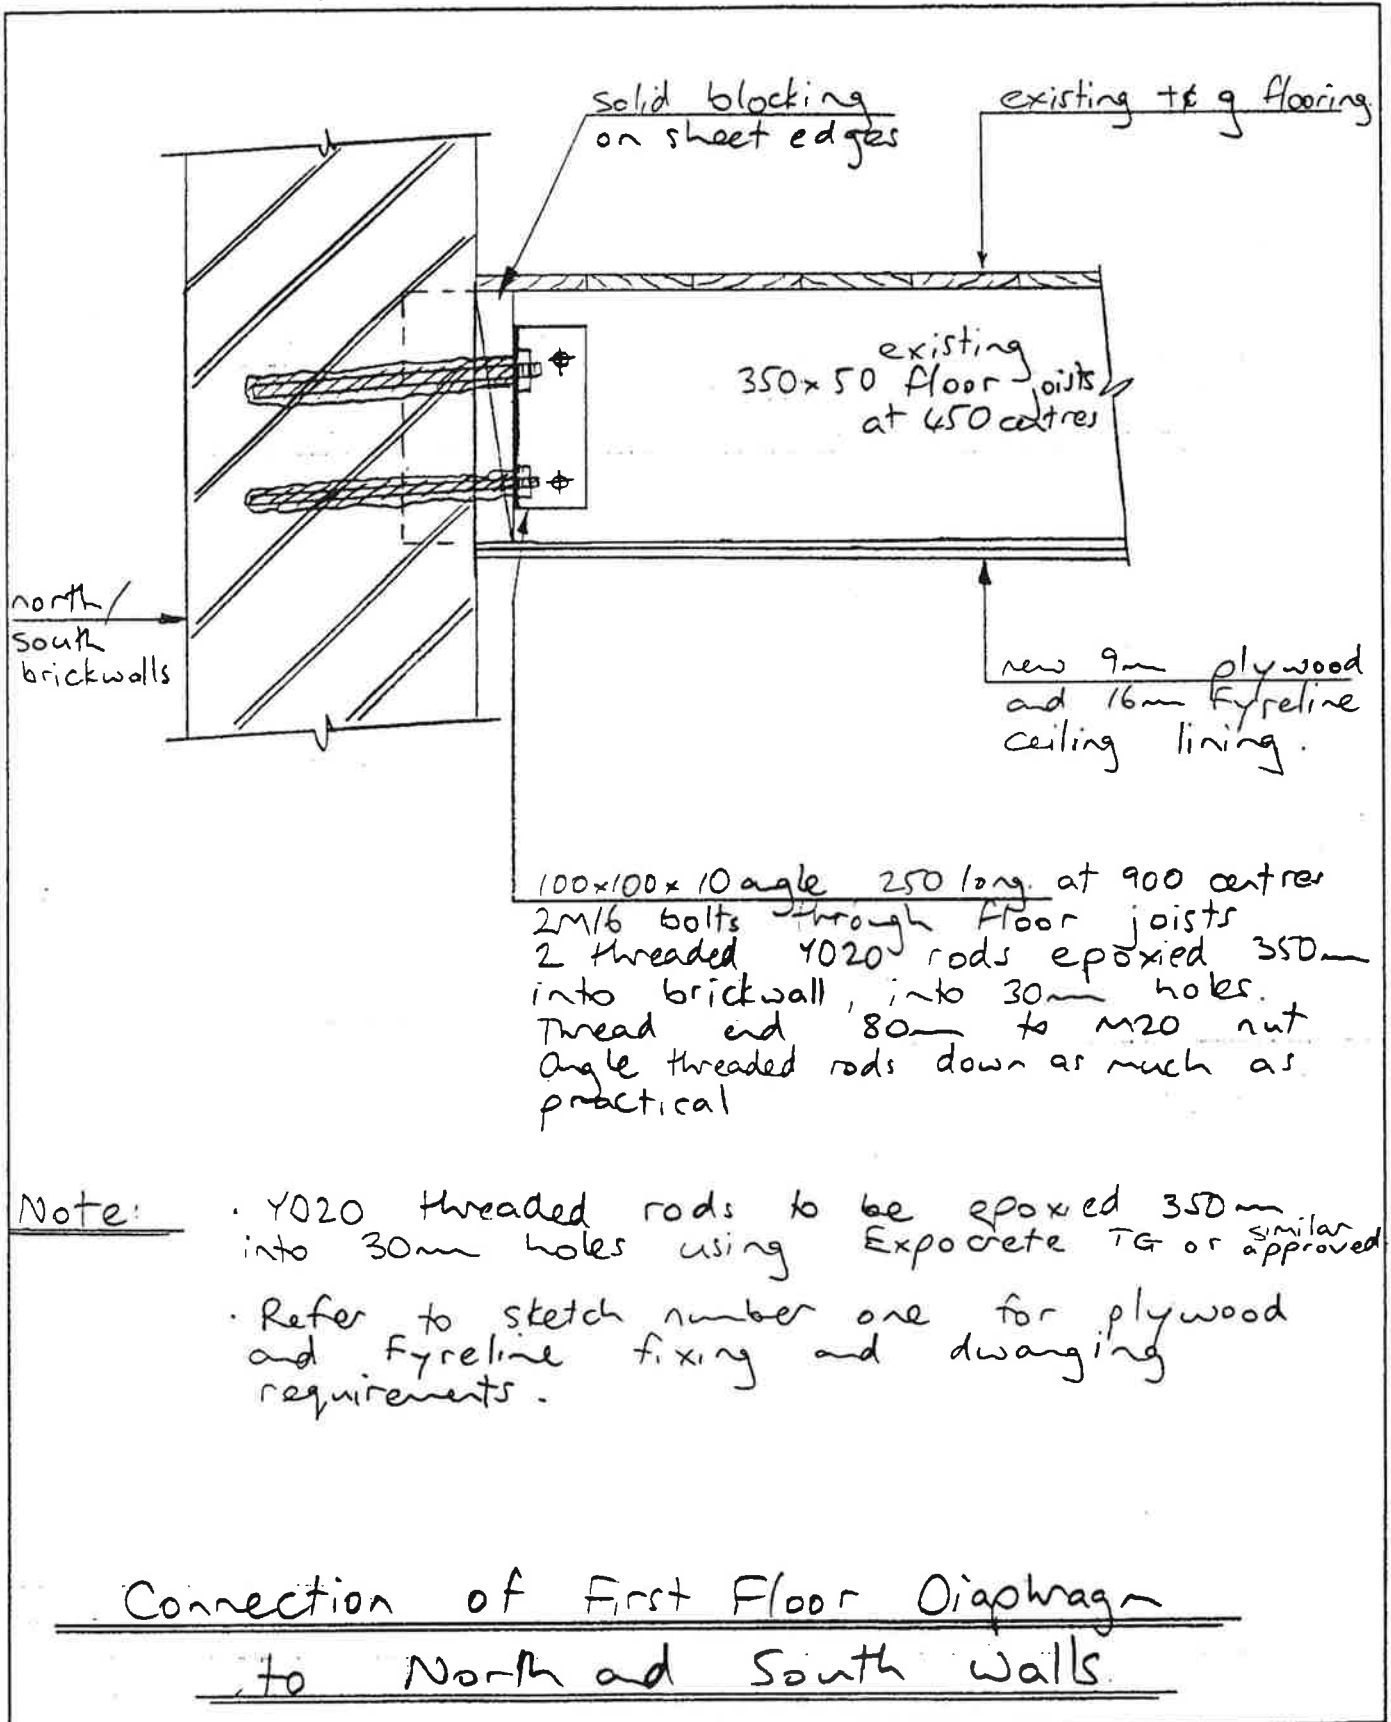 solid blocking
on sheet edges
existing t & g flooring.
existing
350x50 floor joists
at 450 centres
north/
south
brickwalls
new 9mm plywood
and 16mm Fyreline
ceiling lining.
100x100x10 angle 250 long. at 900 centres
2M16 bolts through floor joists
2 threaded YD20 rods epoxied 350mm
into brickwall, into 30mm holes.
Thread end 80mm to M20 nut
Angle threaded rods down as much as
practical
Note: · YD20 threaded rods to be epoxied 350mm
into 30mm holes using Expocrete TG or similar approved
· Refer to sketch number one for plywood
and Fyreline fixing and dwanging
requirements.
Connection of First Floor Diaphragm
to North and South Walls.